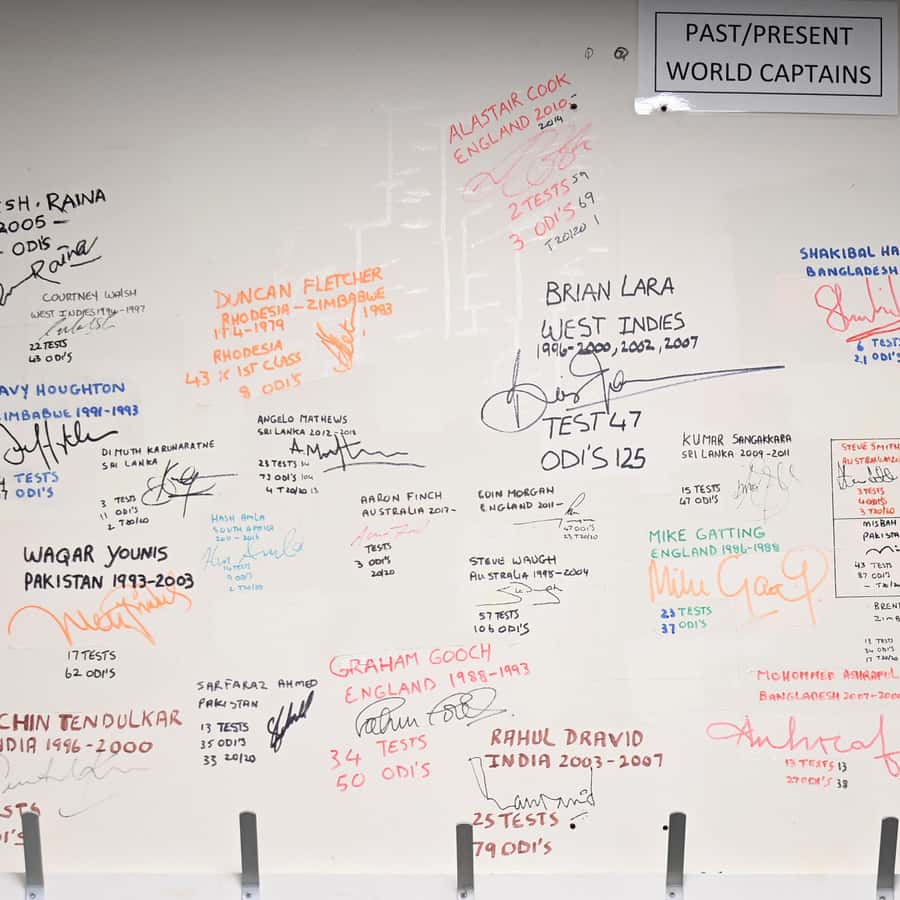 PAST/PRESENT
WORLD CAPTAINS
ALASTAIR COOK
ENGLAND 2010-
2014
2 TESTS 59
3 ODI'S 69
T20/20 1
SH. RAINA
2005 -
ODI'S
Raina
COURTNEY WALSH
WEST INDIES 1994-1997
22 TESTS
43 ODI'S
DUNCAN FLETCHER
RHODESIA - ZIMBABWE
1983
RHODESIA
43 X 1ST CLASS
8 ODI'S
BRIAN LARA
WEST INDIES
1996-2000, 2002, 2007
TEST 47
ODI'S 125
SHAKIBAL HA
BANGLADESH
6 TEST
21 ODI'S
AVY HOUGHTON
IMBABWE 1991-1993
4 TESTS
7 ODI'S
DIMUTH KARUNARATNE
SRI LANKA
3 TESTS
11 ODI'S
2 T20/20
ANGELO MATHEWS
SRI LANKA 2012-
A.M
23 TESTS
73 ODI'S
4 T20/20
AARON FINCH
AUSTRALIA 2017-
TESTS
3 ODI'S
20/20
EOIN MORGAN
ENGLAND 2011-
47 ODI'S
23 T20/20
KUMAR SANGAKKARA
SRI LANKA 2009-2011
15 TESTS
47 ODI'S
STEVE SMITH
AUSTRALIA
3 TESTS
ODI'S
3 T20/20
MISBAH
PAKISTA
43 TEST
87 ODI'S
- T20/20
BREN
ZIMB
13 TEST
34 ODI'S
17 T20/20
WAQAR YOUNIS
PAKISTAN 1993-2003
17 TESTS
62 ODI'S
HASH AMLA
SOUTH AFRICA
TESTS
9 ODI'S
2 T20/20
STEVE WAUGH
AUSTRALIA 1995-2004
57 TESTS
106 ODI'S
MIKE GATTING
ENGLAND 1986-1988
Mike Gatting
23 TESTS
37 ODI'S
SARFARAZ AHMED
PAKISTAN
13 TESTS
35 ODI'S
33 20/20
GRAHAM GOOCH
ENGLAND 1988-1993
34 TESTS
50 ODI'S
MOHOMMED ASHRAFUL
BANGLADESH 2007-200
13 TESTS 13
ODI'S 38
CHIN TENDULKAR
NDIA 1996-2000
STS
I'S
RAHUL DRAVID
INDIA 2003-2007
25 TESTS
79 ODI'S